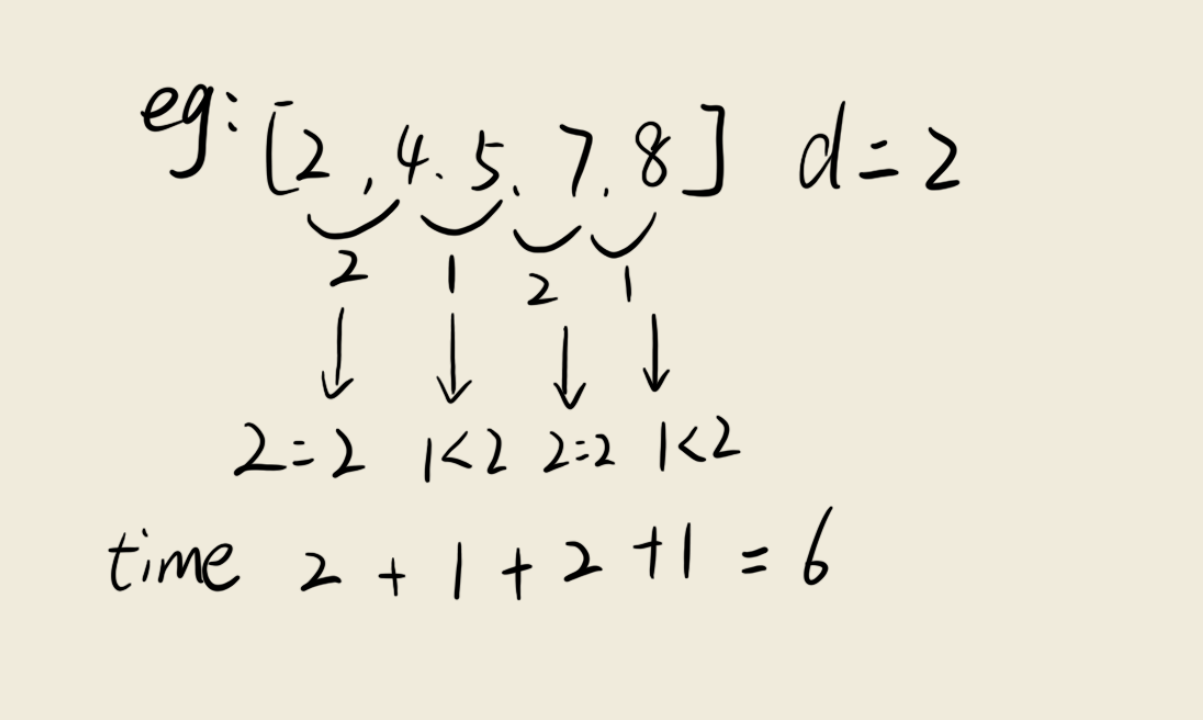 eg: [2, 4. 5. 7. 8] d=2
2 1 2 1
2=2 1<2 2=2 1<2
time 2 + 1 + 2 + 1 = 6